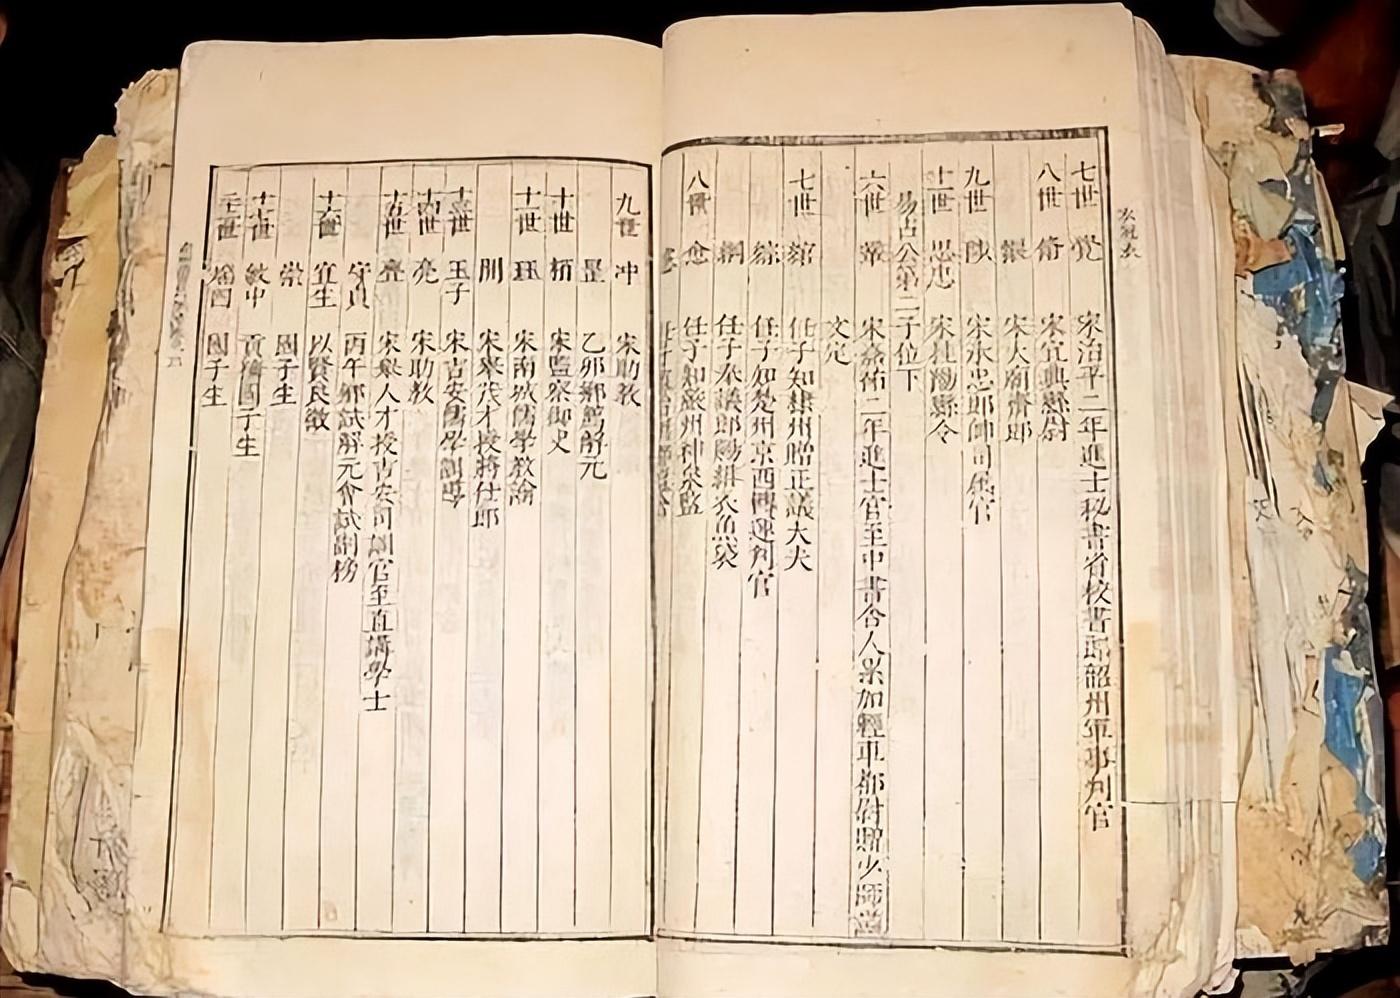 七世 覺 宋治平二年進士秘書省校書郎韶州軍事判官
八世 脩 宋宜興縣尉
宋太廟齋郎
九世 宋承忠郎帥司屬官
十一世 思忠 宋杜渤縣令
易占公第二子位下
六世 鞏 宋嘉祐二年進士官至中書舍人累加輕車都尉贈少師謚
文定
七世 綰 任子知棣州贈正議大夫
綜 任子知楚州京西轉運判官
綱 任子奉議郎賜緋衣魚袋
八世 悆 任子知嚴州神泉監
九世 冲 宋助教
乙卯鄉薦解元
十世 栢 宋監察御史
十一世 珏 宋南城儒學教諭
宋舉茂才授將仕郎
十三世 玉子 宋吉安儒學訓導
十四世 亮 宋助教
十五世 臺 宋舉人才授吉安司訓官至直講學士
守貞 丙午鄉試解元會試副榜
十六世 宜生 以賢良徵
崇 國子生
十七世 敏中 貢國子生
國子生